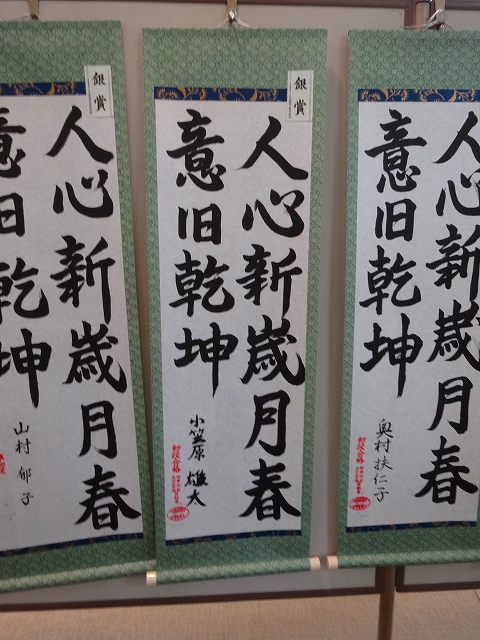 人心新歳月春
意旧乾坤
奥村扶仁子
初段合格
銀賞
人心新歳月春
意旧乾坤
小笠原 雄太
初段合格
銀賞
人心新歳月春
意旧乾坤
山村 郁子